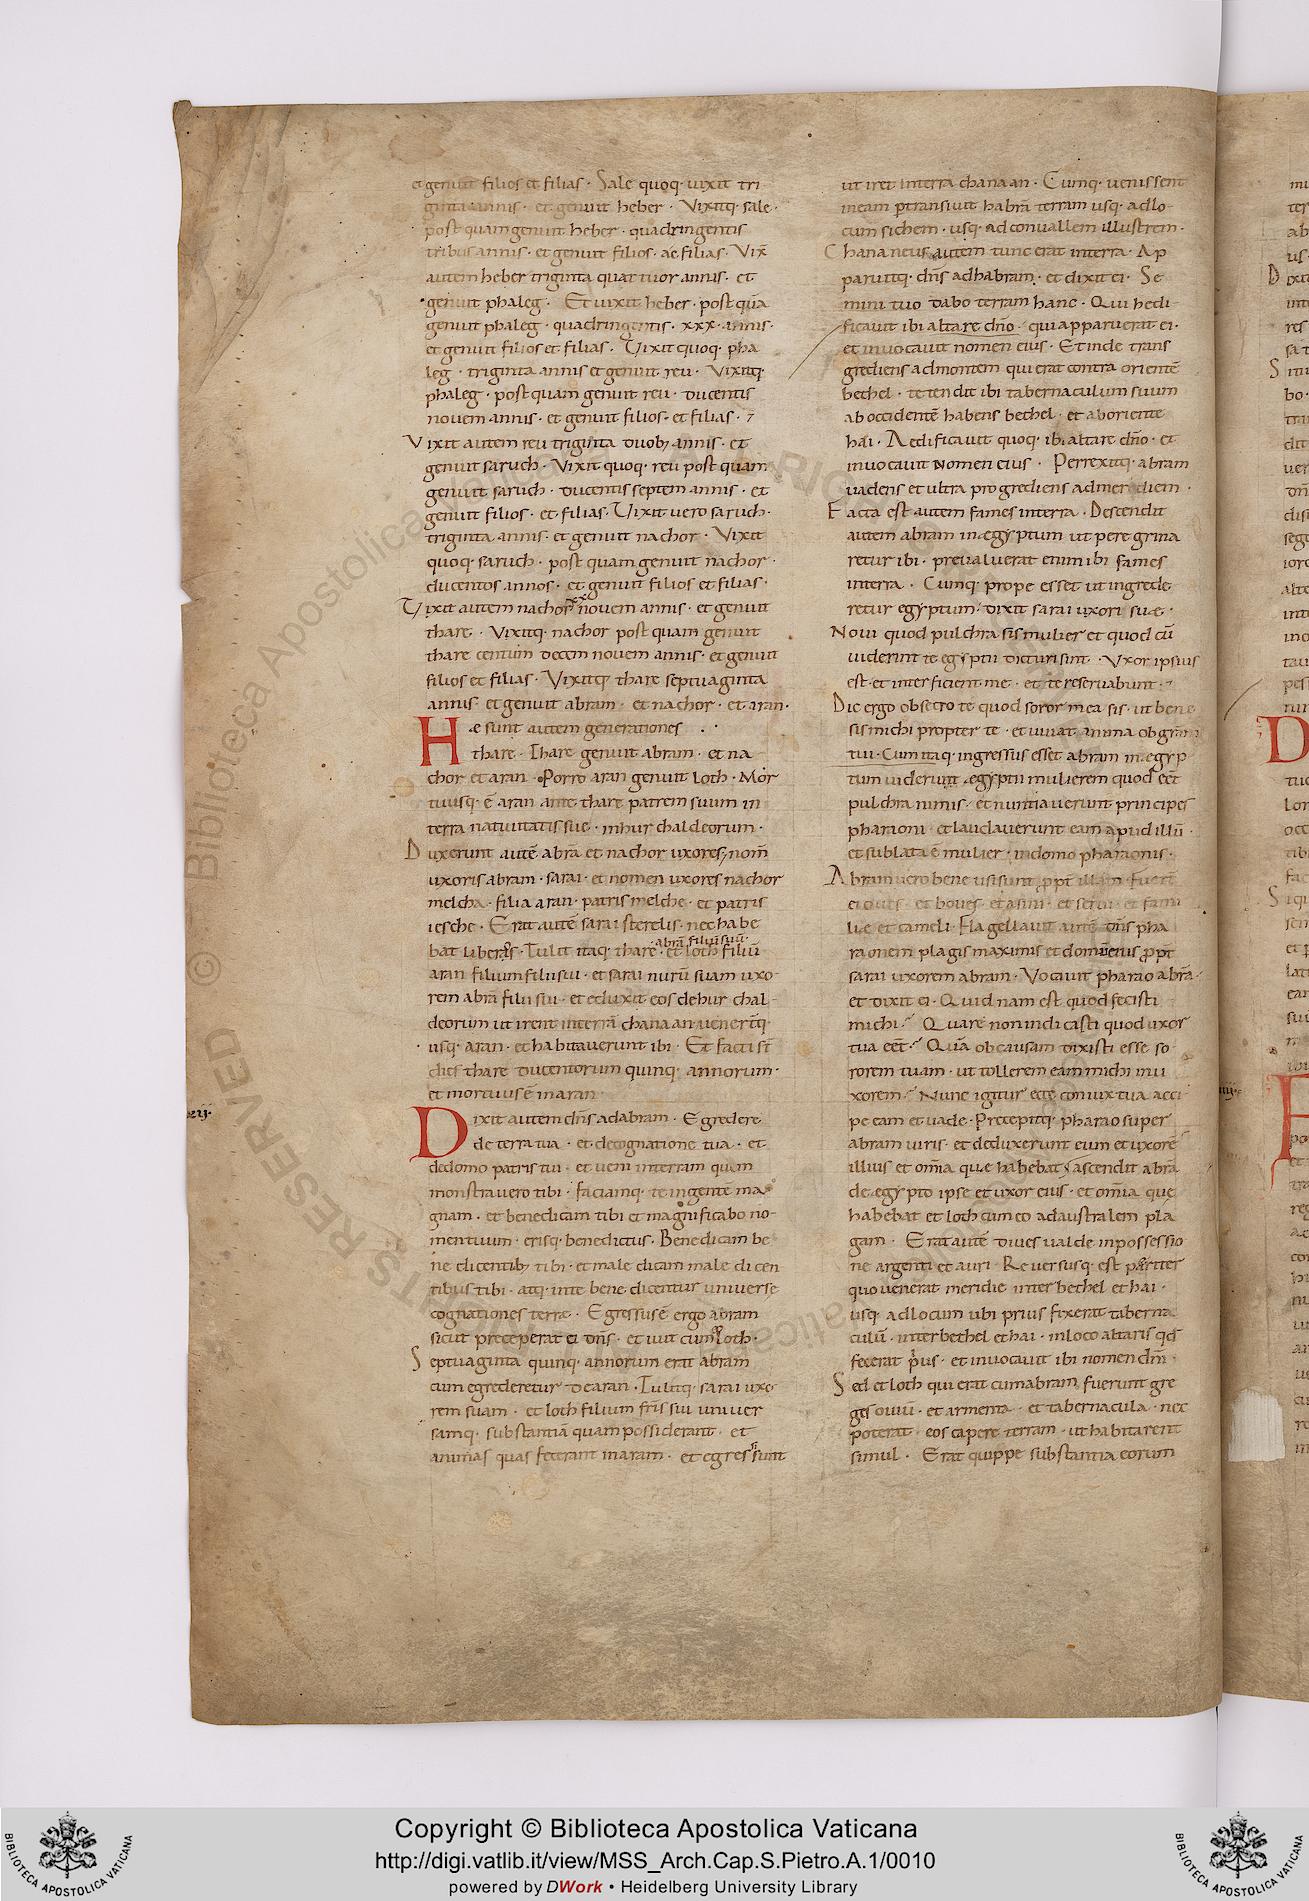 et genuit filios et filias · Sale quoq· uixit tri
ginta annis · et genuit heber · Vixitq· sale·
post quam genuit heber · quadringentis
tribus annis · et genuit filios · ac filias · Vix̄
autem heber triginta quattuor annis · et
genuit phaleg · Et uixit heber · post quā
genuit phaleg · quadringentis · xxx · annis·
et genuit filios et filias · Vixit quoq· pha
leg · triginta annis et genuit reu · Vixitq·
phaleg · post quam genuit reu · ducentis
nouem annis · et genuit filios · et filias · 7
Vixit autem reu triginta duob; annis · et
genuit saruch · Vixit quoq· reu post quam
genuit saruch · ducentis septem annis · et
genuit filios · et filias · Vixit uero saruch·
triginta annis · et genuit nachor · Vixit
quoq· saruch · post quam genuit nachor·
ducentos annos · et genuit filios et filias·
Vixit autem nachor xx nouem annis · et genuit
thare · Vixitq· nachor post quam genuit
thare centum decem nouem annis · et genuit
filios et filias · Vixitq· thare septuaginta
annis · et genuit abram · et nachor · et aran·
Hæ sunt autem generationes ·
thare · Thare genuit abram · et na
chor et aran · Porro aran genuit loth · Mor
tuusq· ē aran ante thare patrem suum in
terra natiuitatis sue · inhur chaldeorum ·
Duxerunt autē abrā et nachor uxores; nom̄
uxoris abram · sarai · et nomen uxores nachor
melcha · filia aran · patris melche · et patris
iesche · Erat autē sarai sterelis · nec habe
bat liberos · Tulit itaq· thare · abrā filiū suū · et loth filiū
aran filium filii sui · et sarai nurū suam uxo
rem abrā filii sui · et eduxit eos dehur chal
deorum ut irent interrā chanaan uenertq·
usq· aran · et habitauerunt ibi · Et facti st̄
dies thare ducentorum quinq· annorum·
et mortuus ē inaran
Dixit autem dn̄s adabram · Egredere
de terra tua · et de cognatione tua · et
dedomo patris tui · et ueni interram quam
monstrauero tibi · faciamq· te ingentē ma
gnam · et benedicam tibi et magnificabo no
mentuum · erisq· benedictus · Benedicam be
ne dicentib; tibi · et male dicam male dicen
tibus tibi · atq· inte bene dicentur uniuerse
cognationes terræ · Egressus ē ergo abram
sicut preceperat ei dn̄s · et iuit cum loth·
Septuaginta quinq· annorum erat abram
cum egrederetur de aran · Tulitq· sarai uxo
rem suam · et loth filium fr̄is sui uniuer
samq· substantiā quam possiderant · et
animas quas fecerant inaram · et egressi sunt
ut iret interra chanaan · Cumq· uenissent
ineam ptransiuit habrā terram usq· adlo
cum sichem · usq· ad conuallem illustrem·
Chananeus autem tunc erat interra · Ap
paruitq· dn̄s adhabram · et dixit ei · Se
mini tuo dabo terram hanc · Qui hedi
ficauit ibi altare dn̄o · qui apparuerat ei·
et inuocauit nomen eius · Et inde trans
grediens admontem qui erat contra orientē
bethel · tetendit ibi tabernaculum suum
ab occidentē habens bethel · et aboriente
hai · Aedificauit quoq· ibi altare dn̄o · et
inuocauit nomen eius · Perrexitq· abram
uadens et ultra progrediens admeridiem ·
Facta est autem fames interra · Descendit
autem abram inægyptum ut peregrina
retur ibi · preualuerat enim ibi fames
interra · Cumq· prope esset ut ingrede
retur egyptum · dixit sarai uxori suæ·
Noui quod pulchra sis mulier et quod cū
uiderint te egyptii dicturi sint · Vxor ipsius
est · et interficient me · et te reseruabunt ·
Dic ergo obsecro te quod soror mea sis · ut bene
sis michi propter te · et uiuat anima ob gram
tui · Cum itaq· ingressus esset abram inægyp
tum uiderunt ægyptii mulierem quod eēt
pulchra nimis · et nuntiauerunt principes
pharioni · et laudauerunt eam apud illū·
et sublata ē mulier · indomo pharaonis·
Abram uero bene usi sunt ppt̄ illam · Fuerīt
ei oues · et boues · et asini · et serui · et fami
lie et cameli · Flagellauit autē dn̄s pha
raonem plagis maximis et domū eius ppt̄
sarai uxorem abram · Vocauit pharao abrā·
et dixit ei · Quid nam est quod fecisti
michi · Quare non indicasti quod uxor
tua eēt · Quā ob causam dixisti esse so
rorem tuam · ut tollerem eam michi inu
xorem · Nunc igitur ecce coniux tua acci
pe eam et uade · Precepitq· pharao super
abram uiris · et deduxerunt eum et uxorē
illius et om̄ia que habebat · ascendit abrā
de ægypto ipse et uxor eius · et om̄ia que
habebat et loth cum eo adaustralem pla
gam · Erat autē diues ualde inpossessio
ne argenti et auri · Reuersusq· est p iter
quo uenerat meridie inter bethel et hai ·
usq· adlocum ubi prius fixerat taberna
culū · inter bethel et hai · inloco altaris qd
fecerat p̄us · et inuocauit ibi nomen dn̄i
Sed et loth qui erat cum abram fuerunt gre
ges ouiū · et armenta · et tabernacula · nec
poterat · eos capere terram · ut habitarent
simul · Erat quippe substantia eorum
© Biblioteca Apostolica Vaticana
Copyright © Biblioteca Apostolica Vaticana
http://digi.vatlib.it/view/MSS_Arch.Cap.S.Pietro.A.1/0010
powered by DWork • Heidelberg University Library
BIBLIOTECA APOSTOLICA VATICANA
BIBLIOTECA APOSTOLICA VATICANA